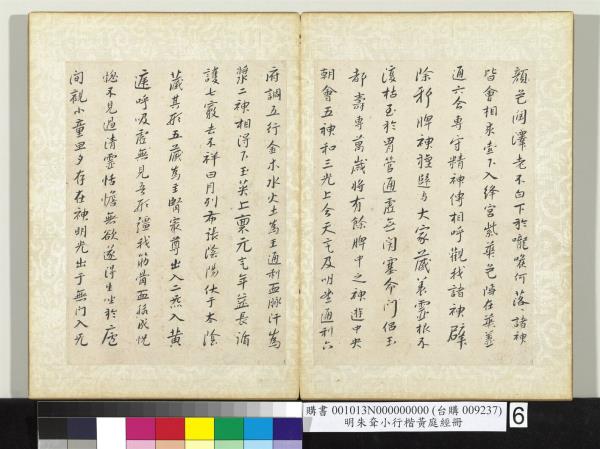 顏色潤澤老不白下於嚨喉何落落諸神
皆會相求索下入絳宮紫華色隱在華蓋
通六合專守精神傳相呼觀我諸神辟
除邪脾神還歸與大家藏養靈根不
復枯至於胃管通虛無閉塞命門侶玉
都壽專萬歲將有餘脾中之神遊中央
朝會五神和三光上合天氣及明堂通利六
府調五行金木水火土為王通利血脈汗為
漿二神相得下玉英上稟元氣年益長循
護七竅去不祥日月列布張陰陽伏于太陰
藏其形五藏為主腎最尊出入二炁入黃
庭呼吸虛無見吾形強我筋骨血脈成恍
惚不見過清靈恬憺無欲遂得生坐於廬
間觀小童旦夕存在神明光出于無門入无
購書 001013N000000000 (台購 009237)
明朱耷小行楷黃庭經冊
6